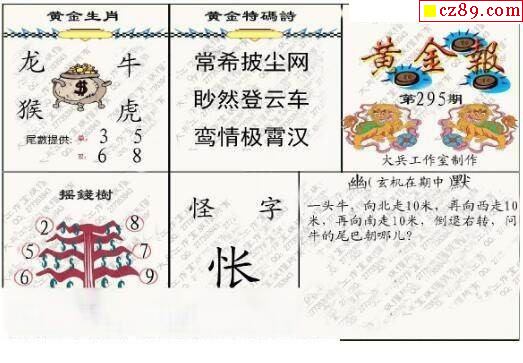 cz89.com
黄金生肖
龙 牛
$
猴 虎
尾數提供: 单: 3 5
双: 6 8
黄金特碼詩
常希披尘网
眇然登云车
鸾情极霄汉
黄金報
第295期
大兵工作室制作
摇錢樹
2 8
5 7
6 9
怪字
怅
幽(玄机在期中 默
一头牛，向北走10米，再向西走10
米，再向南走10米，倒退右转，问
牛的尾巴朝哪儿？